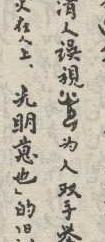 清人误視𦥑为人双手举
火在人上、光明意也」的旧